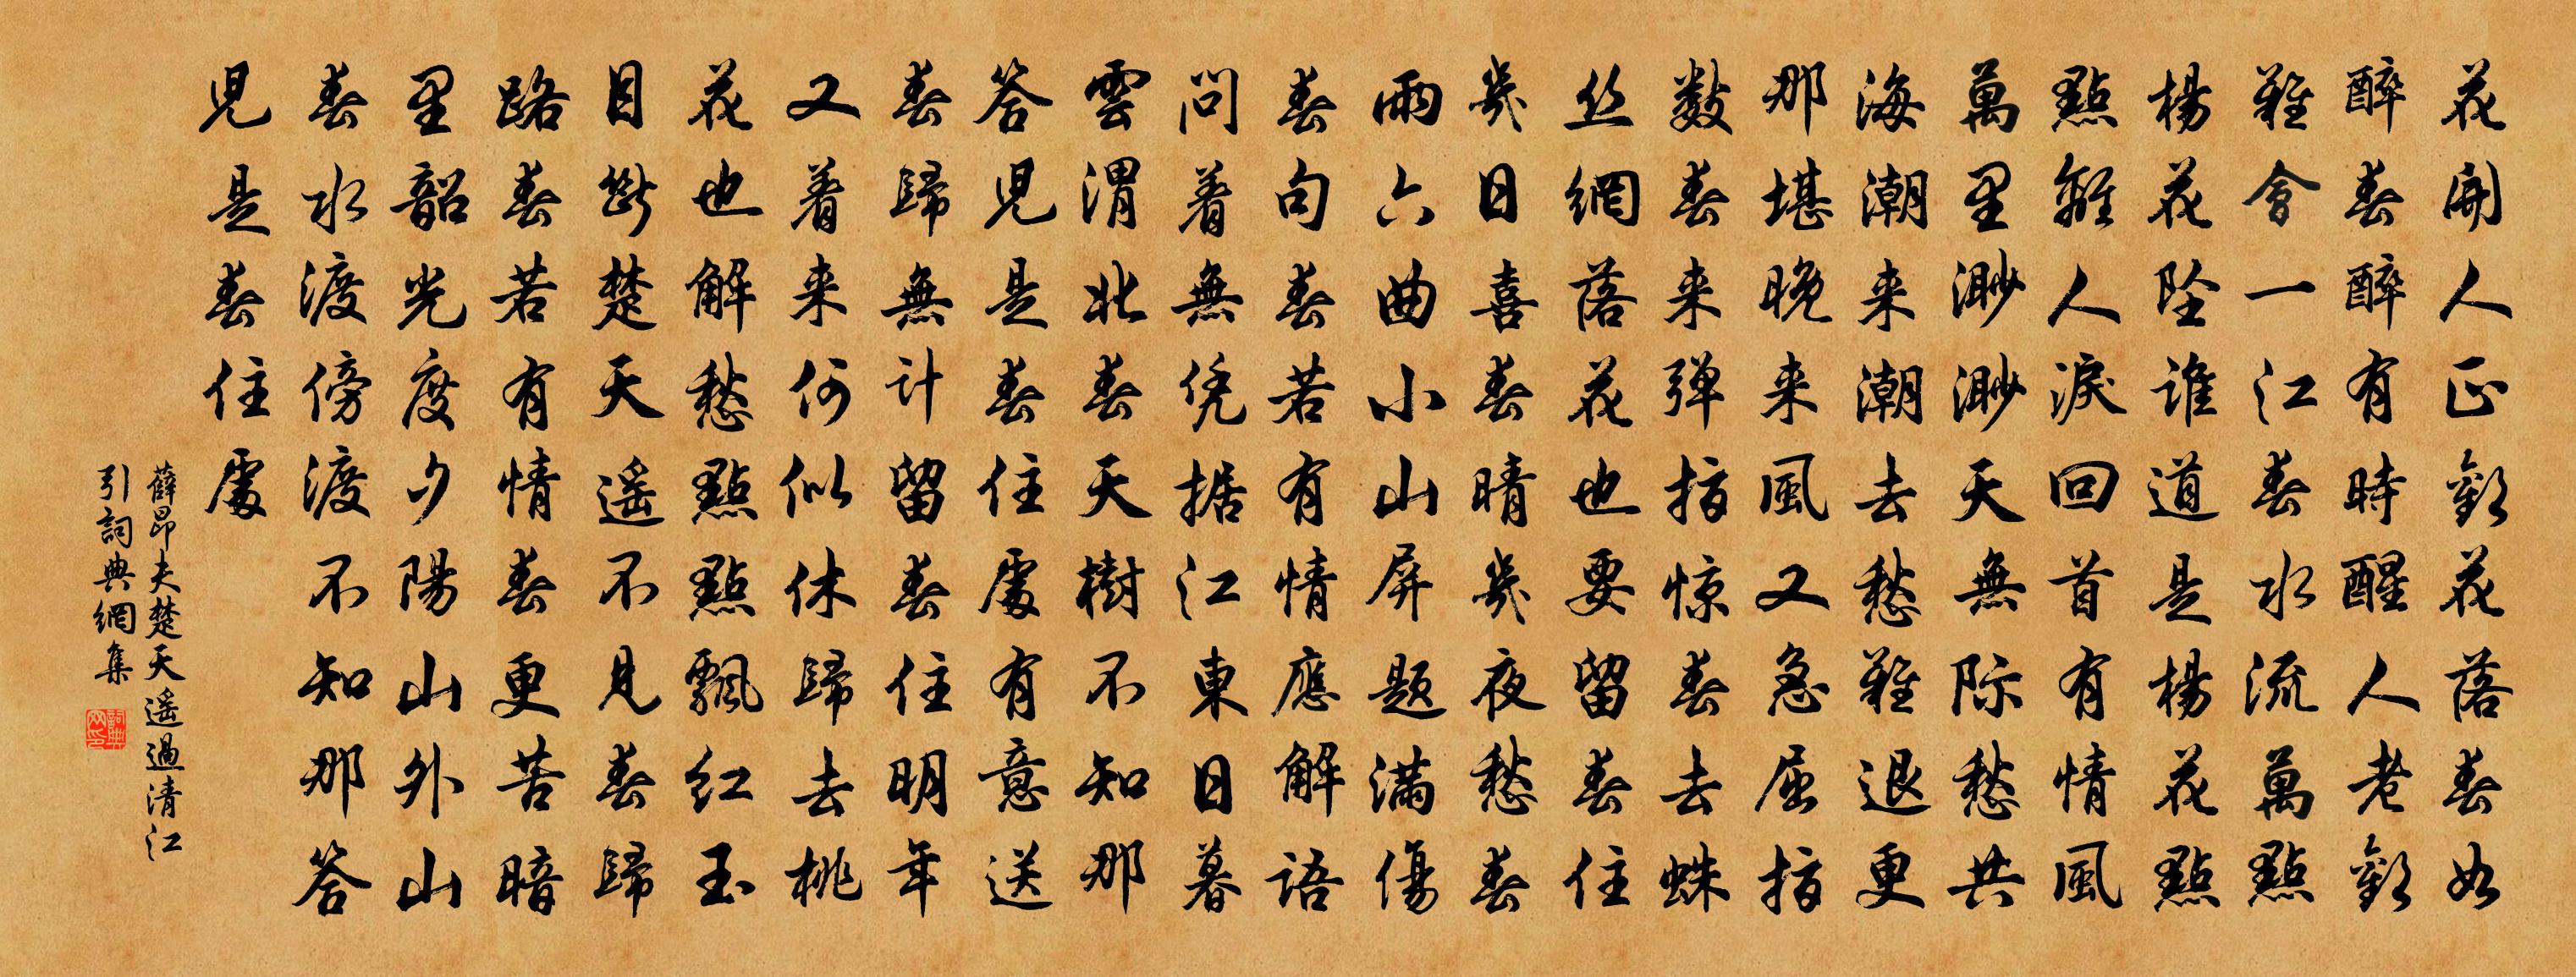 花開人正歡花落春如
醉春醉有時醒人老歡
難會一江春水流萬點
楊花墜誰道是楊花點
點離人淚回首有情風
萬里渺渺天無際愁共
海潮来潮去愁難退更
那堪晚来風又急屈指
數春来弹指惊春去蛛
丝網落花也要留春住
幾日喜春晴幾夜愁春
雨六曲小山屏题滿傷
春句春若有情應解語
問着無凭据江東日暮
雲渭北春天樹不知那
答兒是春住處有意送
春歸無计留春住明年
又着来何似休歸去桃
花也解愁點點飄红玉
目斷楚天遥不見春歸
路春若有情春更苦暗
里韶光度夕陽山外山
春水渡傍渡不知那答
兒是春住處
薛昂夫楚天遥過清江
引詞典網集